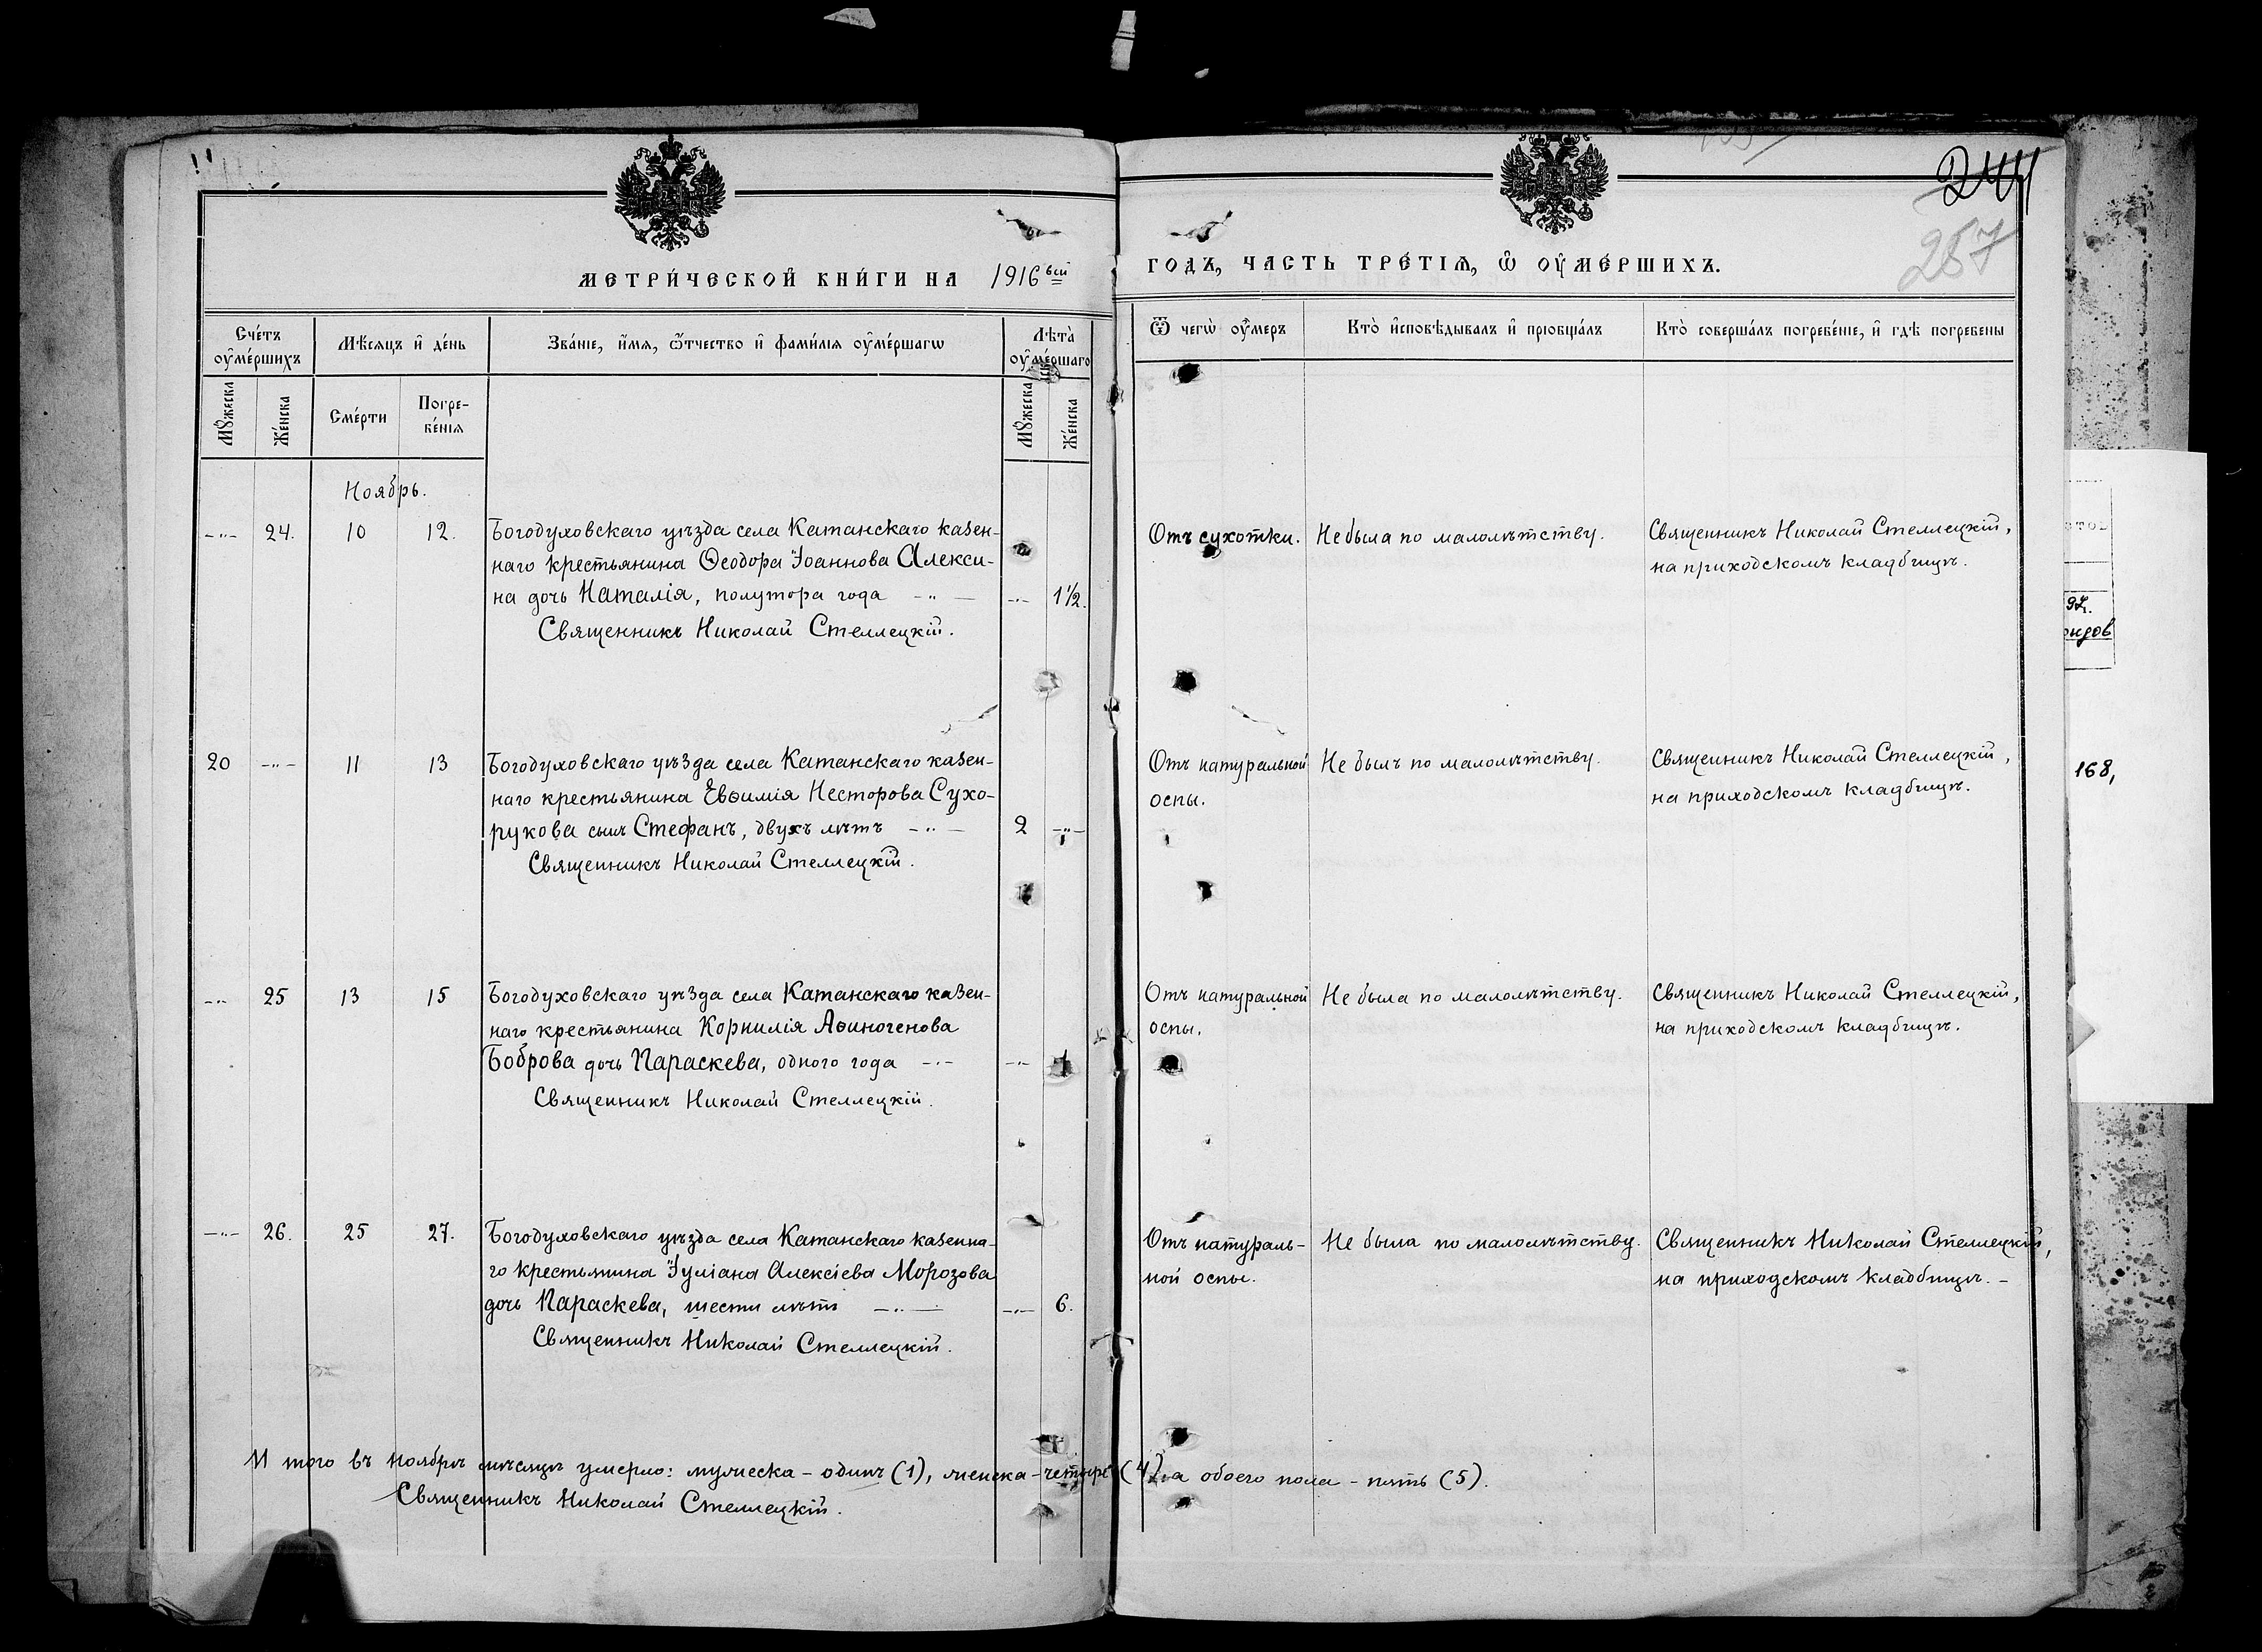 244
257
МЕТРИ́ЧЕСКОЙ КНИ́ГИ НА 1916 вый
ГОДЪ, ЧАСТЬ ТРЕ́ТІѦ, Ѡ ОУ҆МЕ́РШИХЪ.
Сче́тъ оу҆ме́ршихъ
Мѣ́сяцъ и҆ де́нь
Зва́ніе, и҆́мя, ѻ҆́тчество и҆ фами́лія оу҆ме́ршагѡ
Лѣта̀ оу҆ме́ршаго
Ѿ чегѡ̀ оу҆́меръ
Кто̀ и҆сповѣ́дывалъ и҆ пріобща́лъ
Кто̀ соверша́лъ погребе́ніе, и҆ гдѣ̀ погребены
Мꙋ́жеска
Же́нска
Сме́рти
Погре-
бе́нія
Мꙋ́жеска
Же́нска
Ноябрь.
-"- 24. 10 12. Богодуховскаго уѣзда села Катанскаго казен-
наго крестьянина Ѳеодора Іоаннова Алекси-
на дочь Наталія, полутора года -"- -"- 1½.
Священникъ Николай Стеллецкій.
Отъ сухотки. Не была по малолѣтству. Священникъ Николай Стеллецкій,
на приходскомъ кладбищѣ.
20 -"- 11 13 Богодуховскаго уѣзда села Катанскаго казен-
наго крестьянина Евѳимія Несторова Сухо-
рукова сынъ Стефанъ, двухъ лѣтъ -"- 2 -"-
Священникъ Николай Стеллецкій.
Отъ натуральной Не былъ по малолѣтству. Священникъ Николай Стеллецкій,
оспы. на приходскомъ кладбищѣ.
-"- 25 13 15 Богодуховскаго уѣзда села Катанскаго казен-
наго крестьянина Корнилія Аѳиногенова
Боброва дочь Параскева, одного года -"- -"- 1
Священникъ Николай Стеллецкій.
Отъ натуральной Не была по малолѣтству. Священникъ Николай Стеллецкій,
оспы. на приходскомъ кладбищѣ.
-"- 26. 25 27. Богодуховскаго уѣзда села Катанскаго казенна-
го крестьянина Іуліана Алексіева Морозова
дочь Параскева, шести лѣтъ -"- -"- 6.
Священникъ Николай Стеллецкій.
Отъ натураль- Не была по малолѣтству. Священникъ Николай Стеллецкій,
ной оспы. на приходскомъ кладбищѣ. -
И того въ ноябрѣ мѣсяцѣ умерло: мужеска - одинъ (1), женска - четыре (4), а обоего пола - пять (5).
Священникъ Николай Стеллецкій.
168,